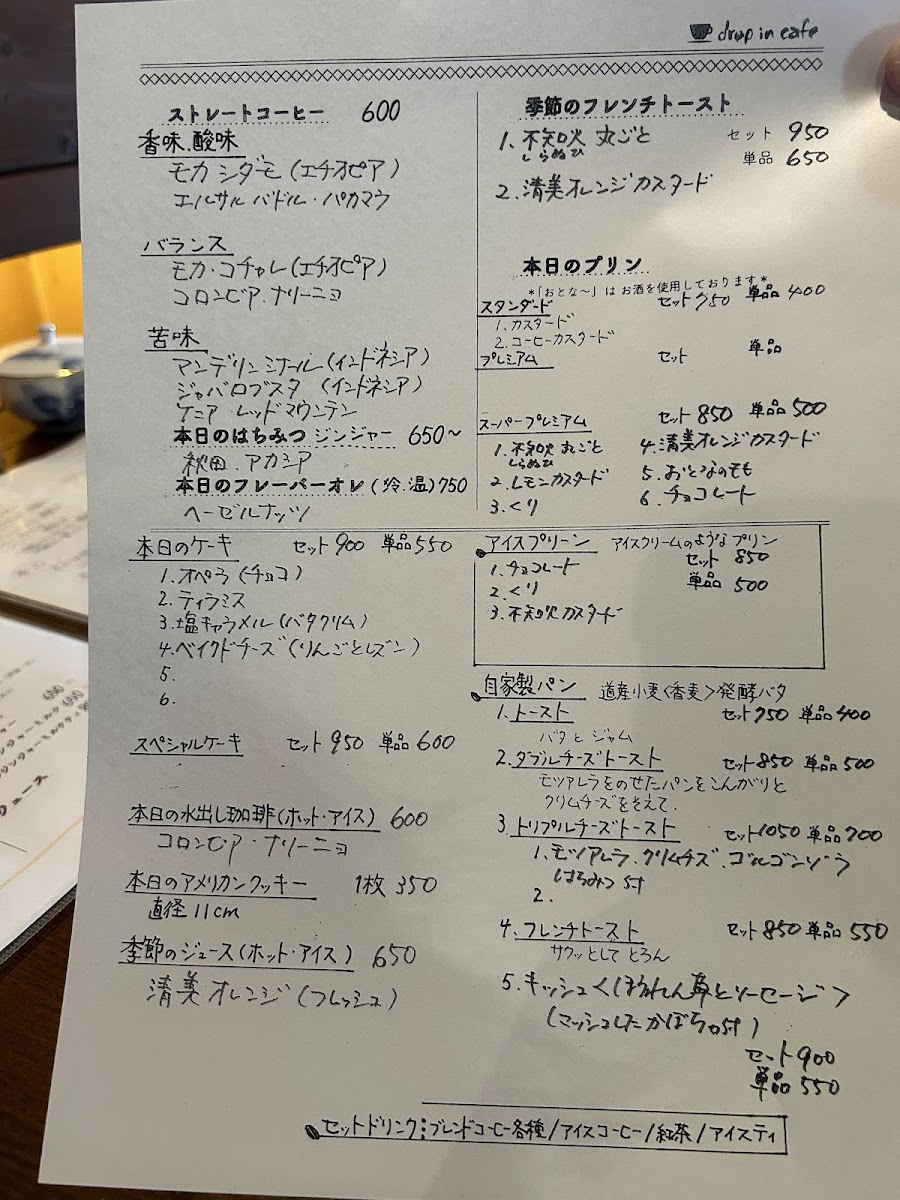 drop in cafe
ストレートコーヒー 600
香味、酸味
モカ シダモ (エチオピア)
エルサルバドル・パカマラ
バランス
モカ・コチャレ (エチオピア)
コロンビア・ナリーニョ
苦味
マンデリン ミナール (インドネシア)
ジャバロブスタ (インドネシア)
ケニア レッドマウンテン
本日のはちみつ ジンジャー 650~
秋田・アカシア
本日のフレーバーオレ (冷、温) 750
ヘーゼルナッツ
季節のフレンチトースト
1. 不知火 丸ごと セット 950
しらぬひ 単品 650
2. 清美オレンジカスタード
本日のプリン
*「おとな~」は お酒を使用しております*
スタンダード セット 750 単品 400
1. カスタード
2. コーヒーカスタード
プレミアム セット 単品
スーパープレミアム セット 850 単品 500
1. 不知火 丸ごと
しらぬひ
2. レモンカスタード
3. くり
4. 清美オレンジカスタード
5. おとなのモモ
6. チョコレート
本日のケーキ セット 900 単品 550
1. オペラ (チョコ)
2. ティラミス
3. 塩キャラメル (バタクリム)
4. ベイクドチーズ (りんごとレズン)
5.
6.
スペシャルケーキ セット 950 単品 600
本日の水出し珈琲 (ホット・アイス) 600
コロンビア・ナリーニョ
本日のアメリカンクッキー 1枚 350
直径 11cm
季節のジュース (ホット・アイス) 650
清美オレンジ (フレッシュ)
アイスプリーン アイスクリームのようなプリン
セット 850
単品 500
1. チョコレート
2. くり
3. 不知火カスタード
自家製パン 道産小麦<香麦>発酵バタ
1. トースト セット 750 単品 400
バタとジャム
2. ダブルチーズトースト セット 850 単品 500
モツアレラをのせたパンをこんがりと
クリムチーズをそえて.
3. トリプルチーズトースト セット 1050 単品 700
1. モツアレラ・クリムチズ・ゴルゴンゾラ
はちみつ付
2.
4. フレンチトースト セット 850 単品 550
サクッとして とろん
5. キッシュ<ほうれん草とソーセージ>
(マッシュしたかぼちゃ付)
セット 900
単品 550
セットドリンク:ブレンドコーヒー各種/アイスコーヒー/紅茶/アイスティ